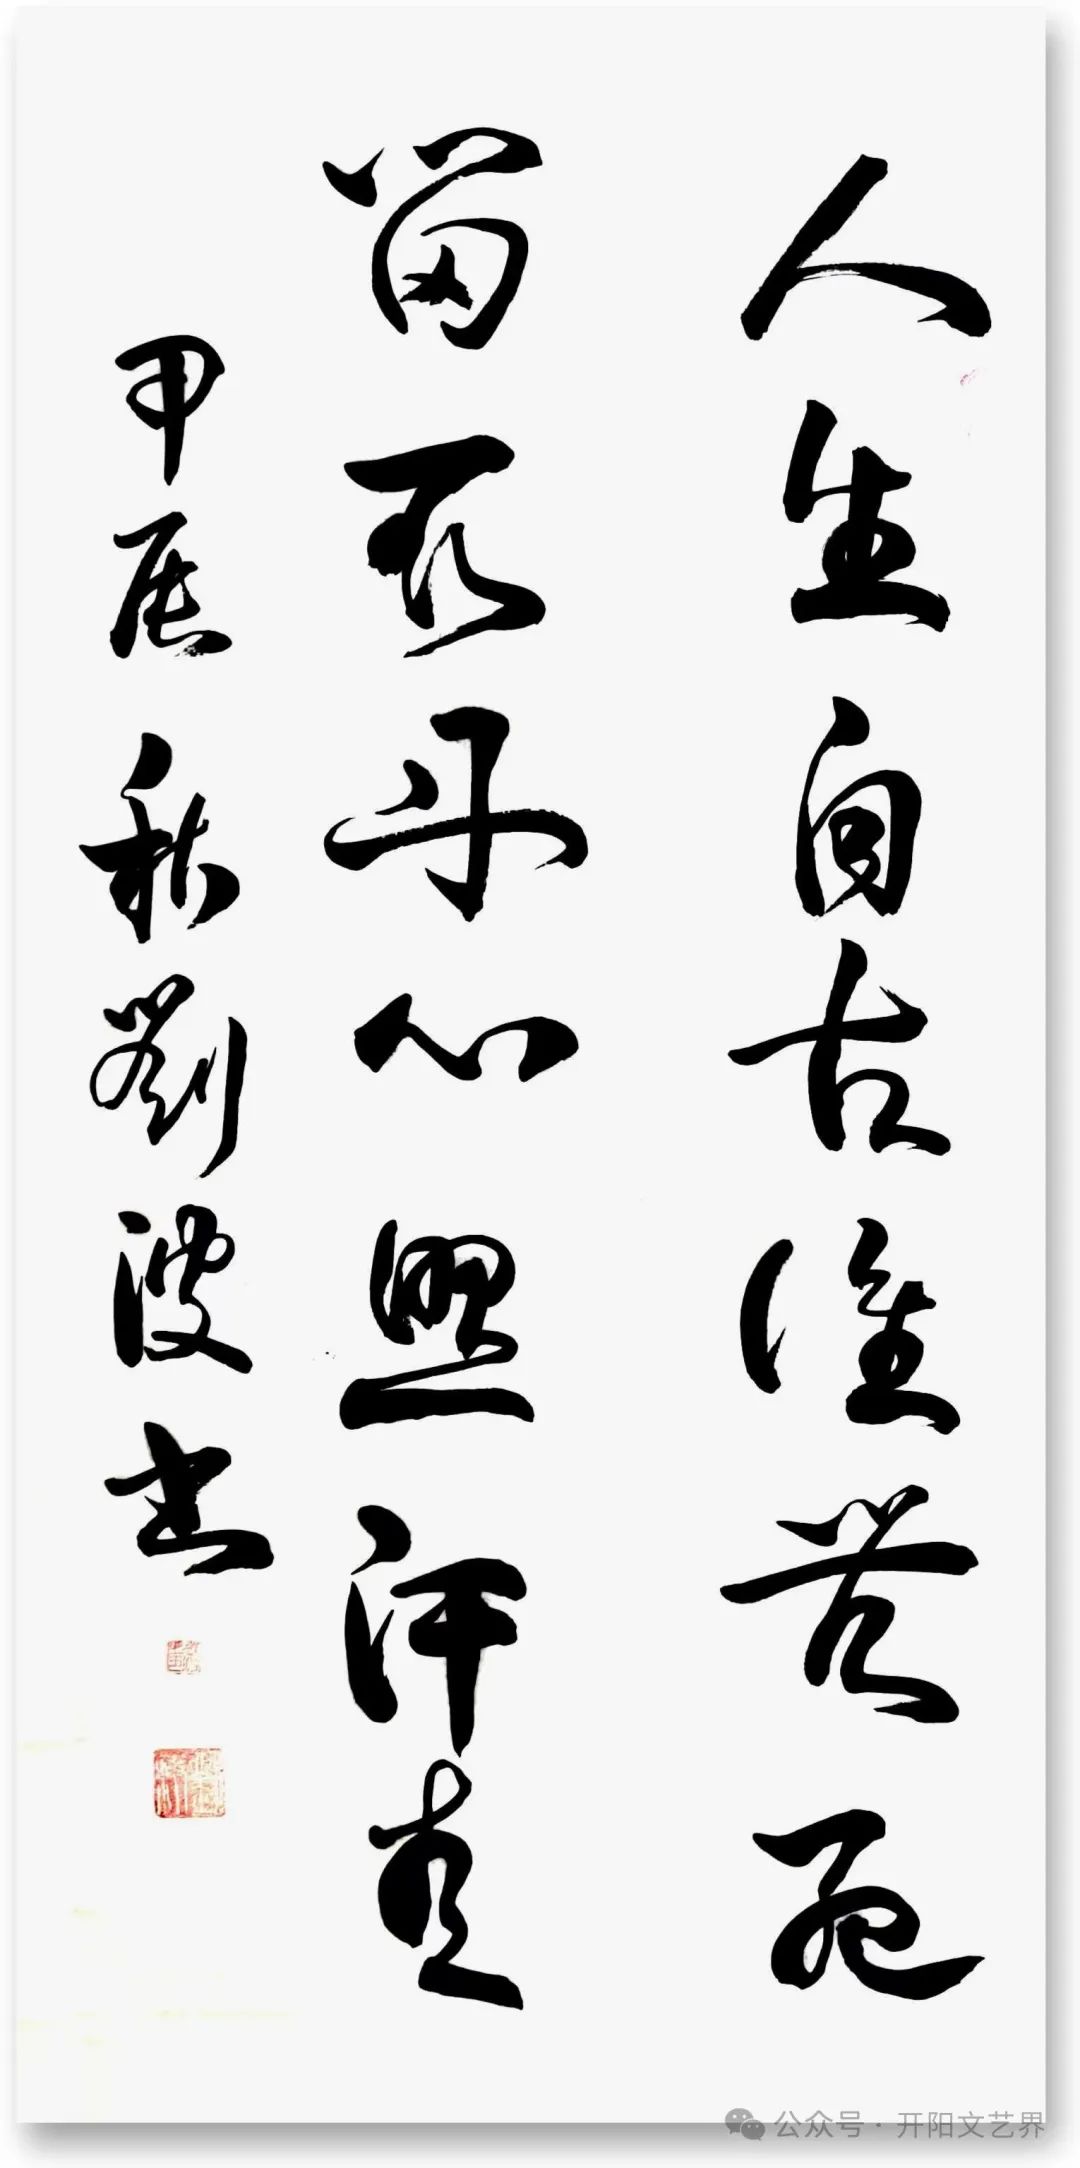 人生自古誰無死
留取丹心照汗青
甲辰秋劉波書
公众号 · 开阳文艺界